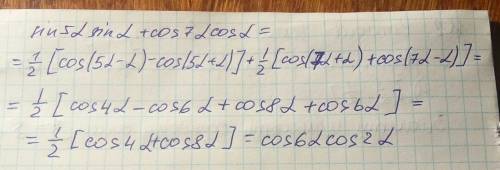 sin5α sinα + cos7α cosα =
= 1/2 [cos(5α-α) - cos(5α+α)] + 1/2 [cos(7α+α) + cos(7α-α)] =
= 1/2 [cos4α - cos6α + cos8α + cos6α] =
= 1/2 [cos4α + cos8α] = cos6α cos2α